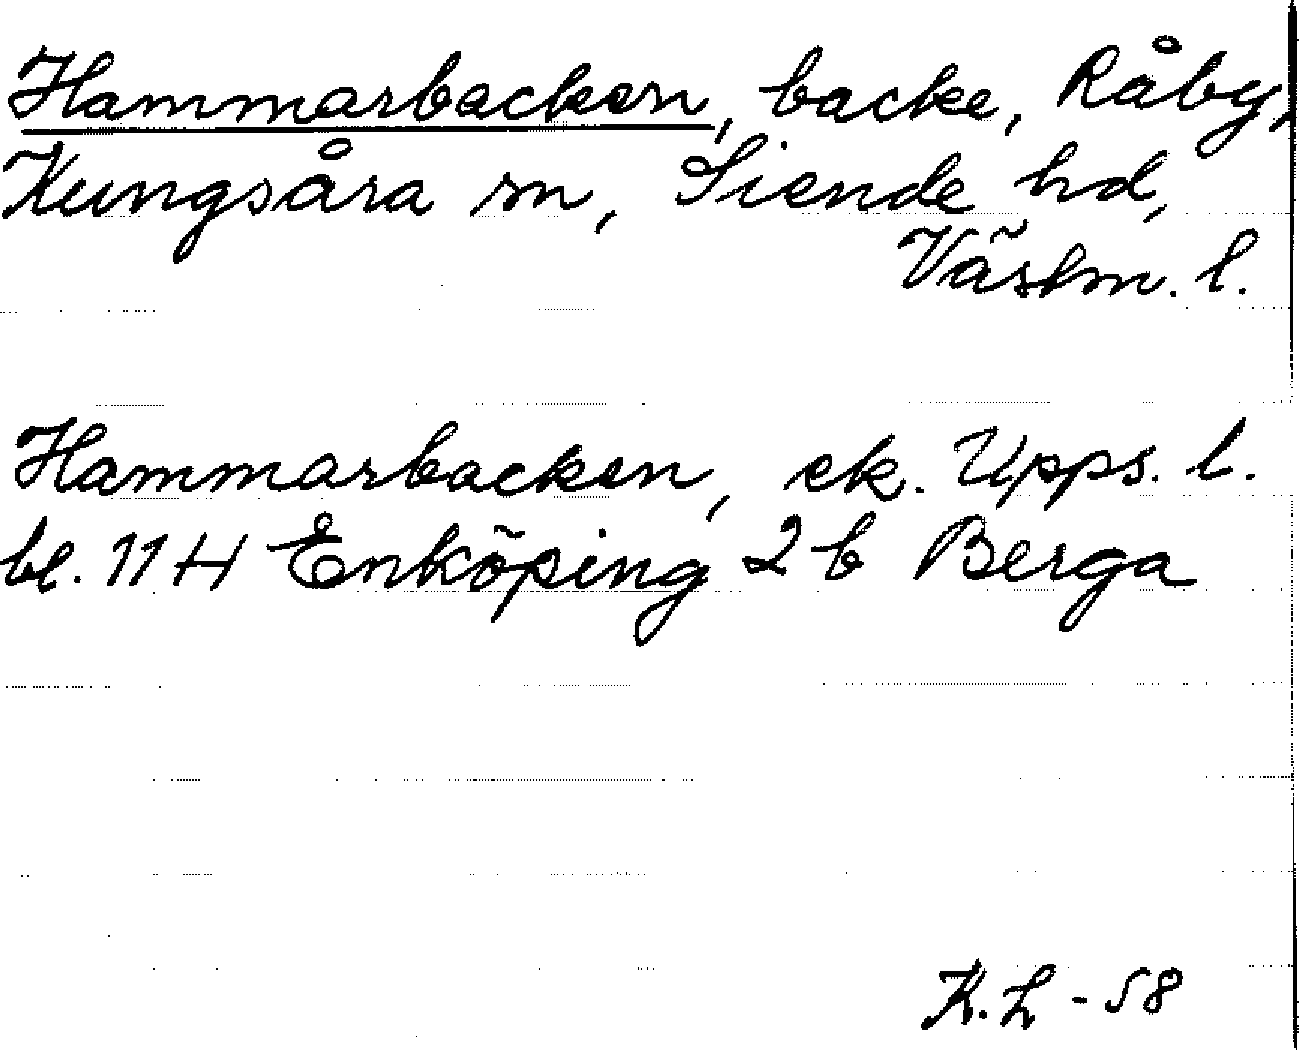 Hammarbacken, backe, Råby,
Kungsåra sn, Siende hd,
Västm. l.
Hammarbacken, ek. Upps. l.
bl. 11 H Enköping 2 b Berga
K.L - 58